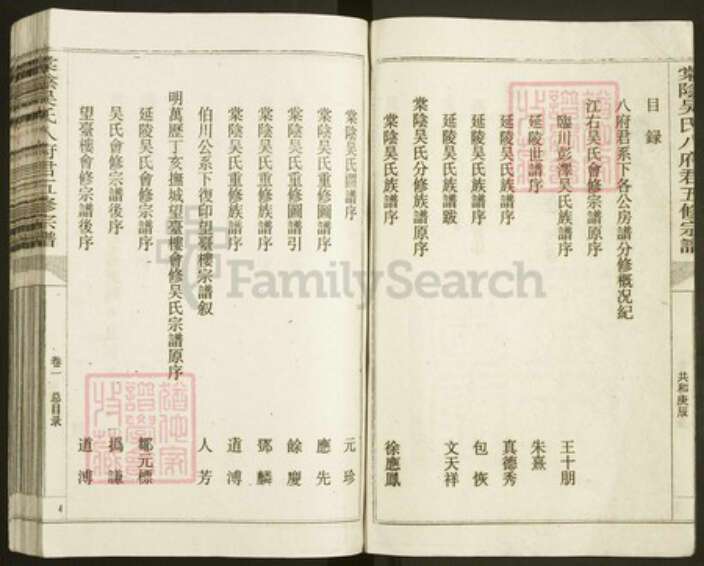 棠陰吳氏八府君五修宗譜
共和庚辰
目錄
八府君系下各公房譜分修概況紀
江右吳氏會修宗譜原序
臨川彭澤吳氏族譜序 王十朋
延陵世譜序 朱熹
延陵吳氏族譜序 真德秀
延陵吳氏族譜序 包恢
延陵吳氏族譜跋 文天祥
棠陰吳氏分修族譜原序
棠陰吳氏族譜序 徐應鳳
棠陰吳氏圖譜序 元珍
棠陰吳氏重修圖譜序 應先
棠陰吳氏重修圖譜引 餘慶
棠陰吳氏重修族譜序 鄧麟
棠陰吳氏重修族譜序 道溥
伯川公系下復印望臺樓宗譜叙 人芳
明萬歷丁亥撫城望臺樓會修吳氏宗譜原序
延陵吳氏會修宗譜序 鄒元標
吳氏會修宗譜後序 撝謙
望臺樓會修宗譜後序 道溥
棠陰吳氏八府君五修宗譜
卷一 总目录
4
FamilySearch